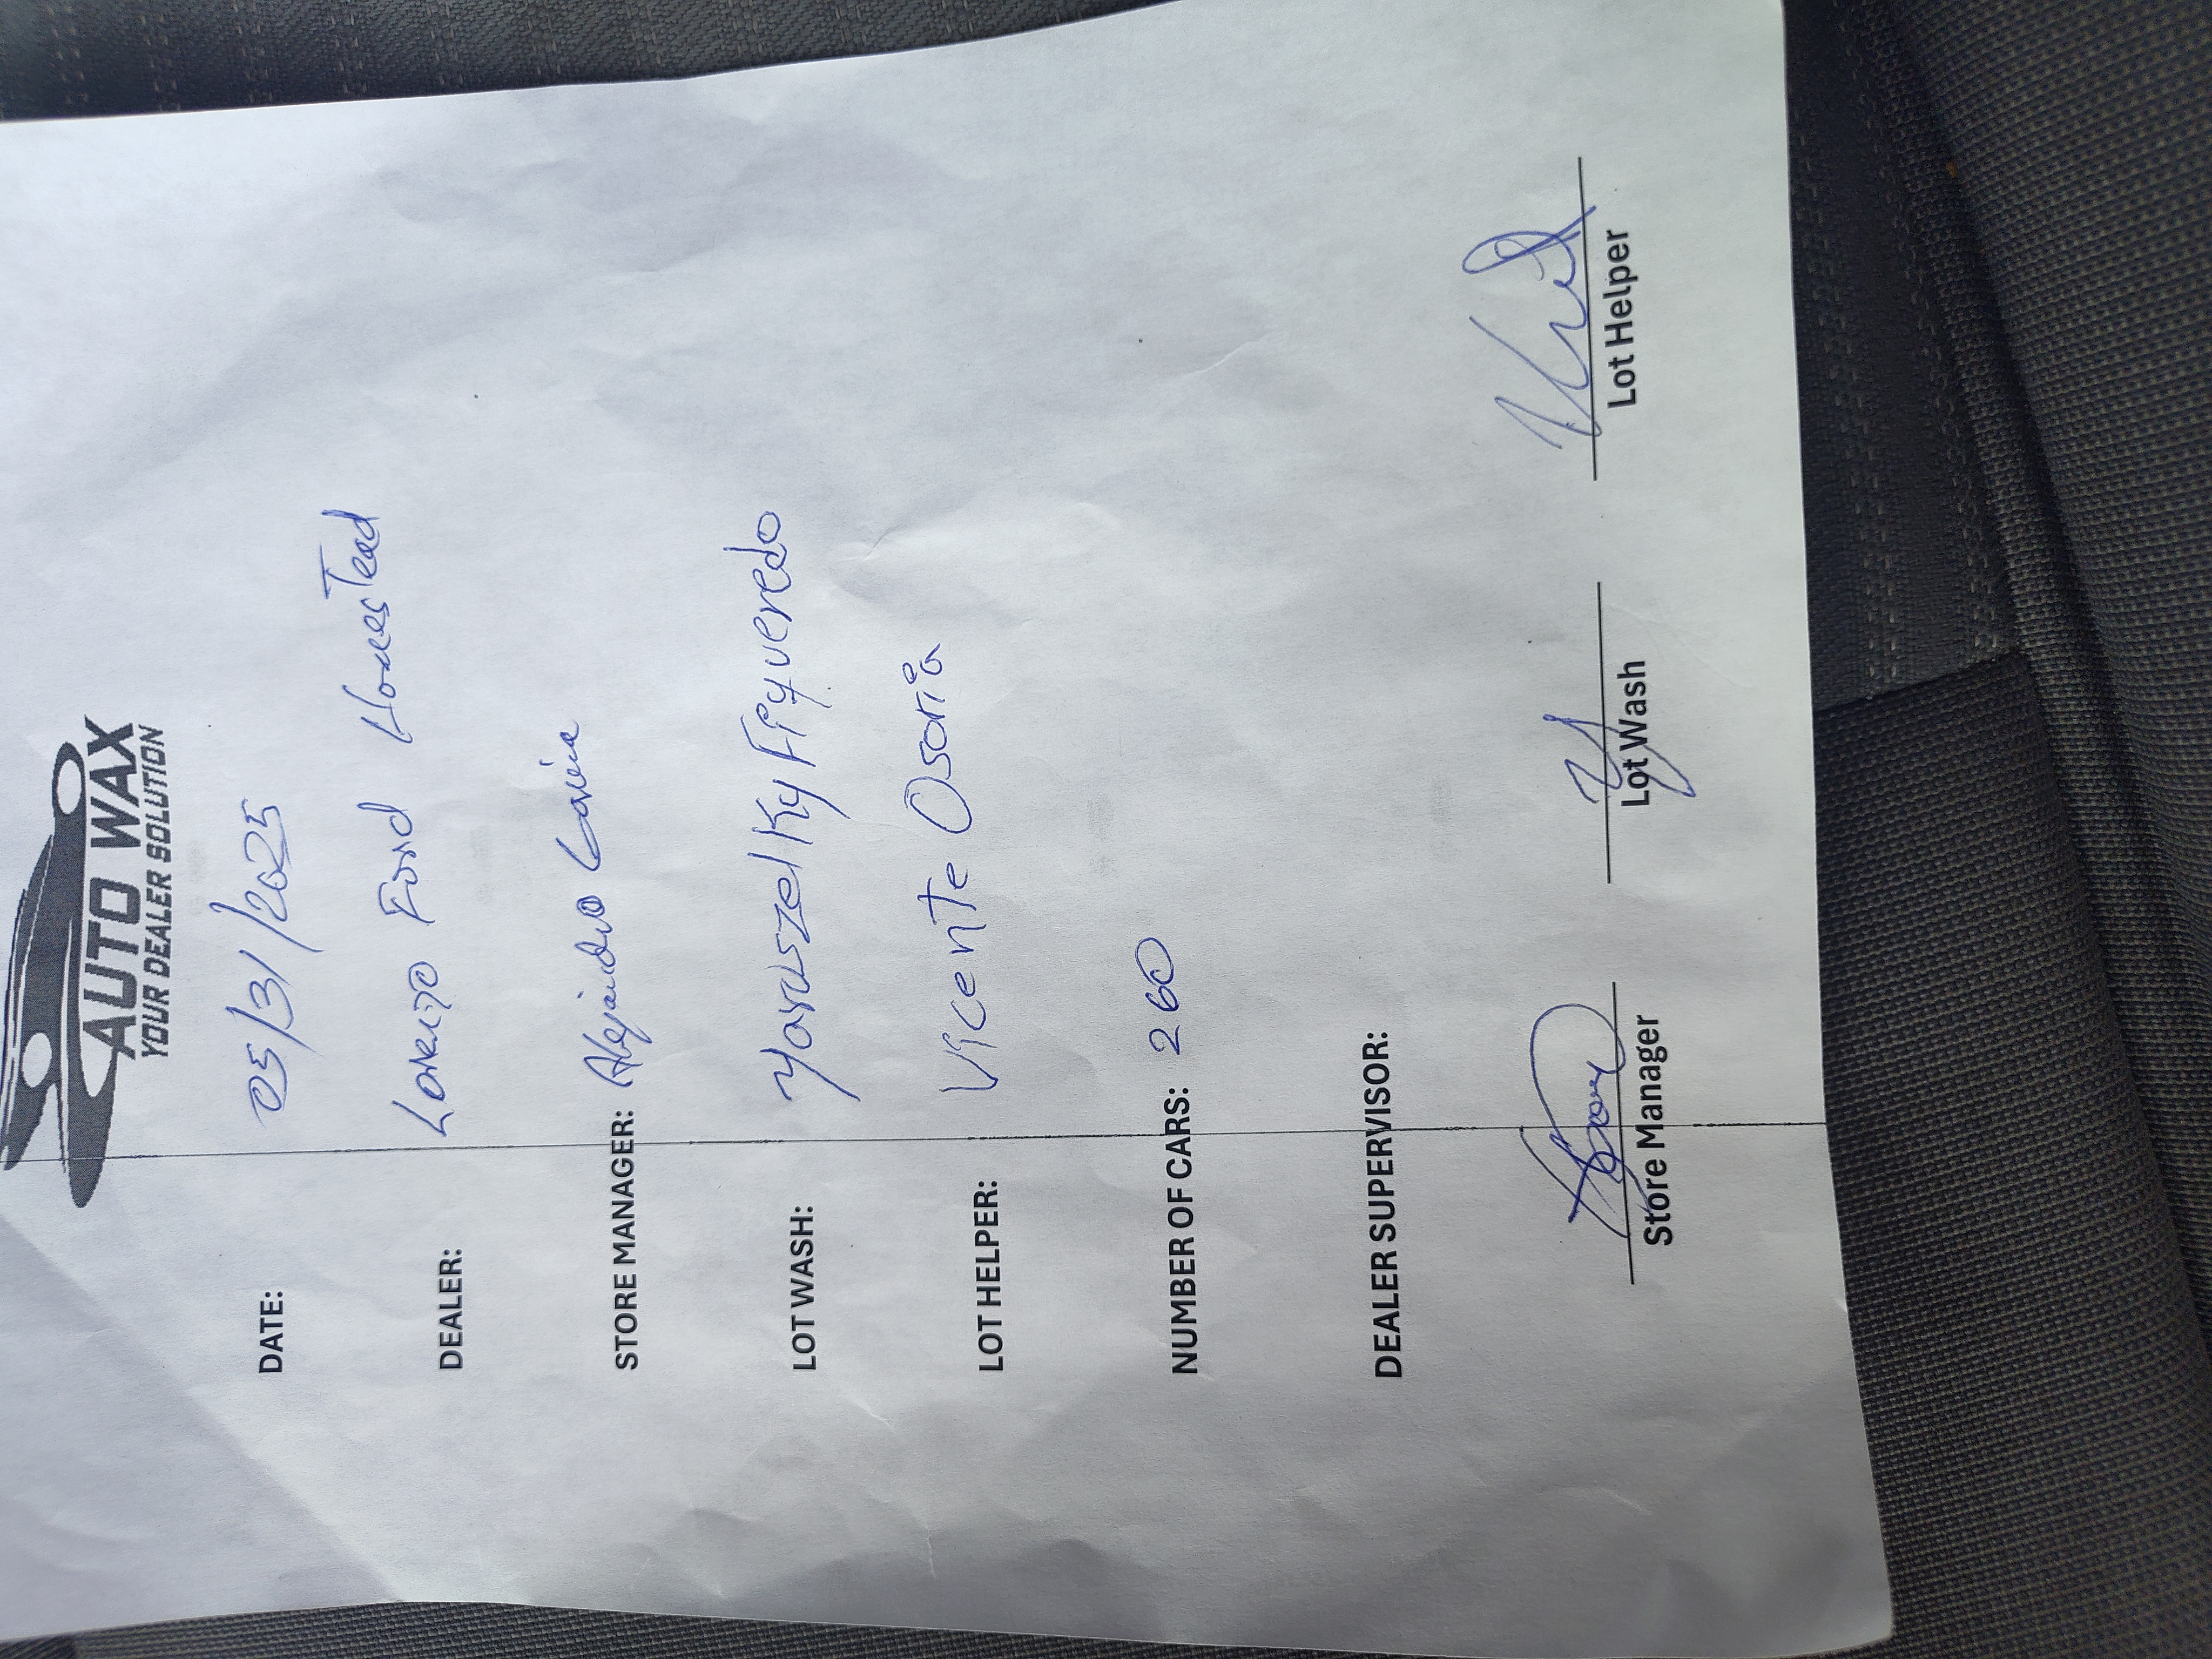 AUTO WAX
YOUR DEALER SOLUTION
DATE: 05/31/2025
DEALER: Lorenzo Ford HomesTead
STORE MANAGER: Alejandro
LOT WASH: Figueredo
LOT HELPER: Vicente Osoria
NUMBER OF CARS: 260
DEALER SUPERVISOR:
Store Manager Lot Wash Lot Helper